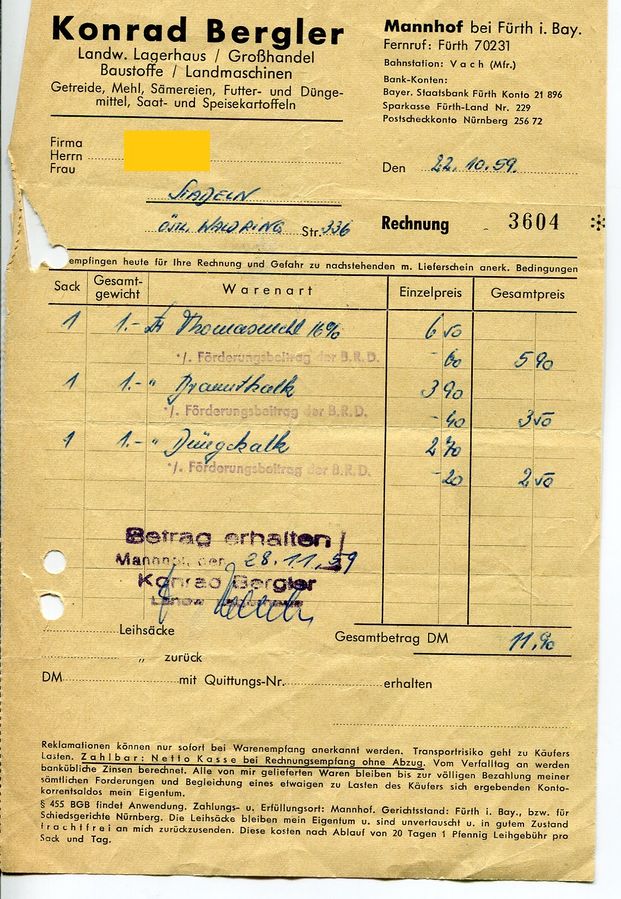 Konrad Bergler
Landw. Lagerhaus / Großhandel
Baustoffe / Landmaschinen
Getreide, Mehl, Sämereien, Futter- und Dünge-
mittel, Saat- und Speisekartoffeln
Mannhof bei Fürth i. Bay.
Fernruf: Fürth 70231
Bahnstation: Vach (Mfr.)
Bank-Konten:
Bayer. Staatsbank Fürth Konto 21 896
Sparkasse Fürth-Land Nr. 229
Postscheckkonto Nürnberg 256 72
Firma
Herrn
Frau
Den 22.10.59.
STADELN
ÖSTL. WALDRING Str. 336
Rechnung 3604
empfingen heute für Ihre Rechnung und Gefahr zu nachstehenden m. Lieferschein anerk. Bedingungen
Sack Gesamt-gewicht Warenart Einzelpreis Gesamtpreis
1 1.- Ztr Thomasmehl 16% 6 50
·/. Förderungsbeitrag der B.R.D. -60 5 90
1 1.- " Branntkalk 3 90
·/. Förderungsbeitrag der B.R.D. -40 3 50
1 1.- " Düngekalk 2 70
·/. Förderungsbeitrag der B.R.D. -20 2 50
Betrag erhalten!
Mannhof, den 28.11.59
Konrad Bergler
Landw. Lagerhaus
Leihsäcke
Gesamtbetrag DM 11.90
„ zurück
DM mit Quittungs-Nr. erhalten
Reklamationen können nur sofort bei Warenempfang anerkannt werden. Transportrisiko geht zu Käufers
Lasten. Zahlbar: Netto Kasse bei Rechnungsempfang ohne Abzug. Vom Verfalltag an werden
bankübliche Zinsen berechnet. Alle von mir gelieferten Waren bleiben bis zur völligen Bezahlung meiner
sämtlichen Forderungen und Begleichung eines etwaigen zu Lasten des Käufers sich ergebenden Konto-
korrentsaldos mein Eigentum.
§ 455 BGB findet Anwendung. Zahlungs- u. Erfüllungsort: Mannhof. Gerichtsstand: Fürth i. Bay., bzw. für
Schiedsgerichte Nürnberg. Die Leihsäcke bleiben mein Eigentum u. sind unvertauscht u. in gutem Zustand
frachtfrei an mich zurückzusenden. Diese kosten nach Ablauf von 20 Tagen 1 Pfennig Leihgebühr pro
Sack und Tag.